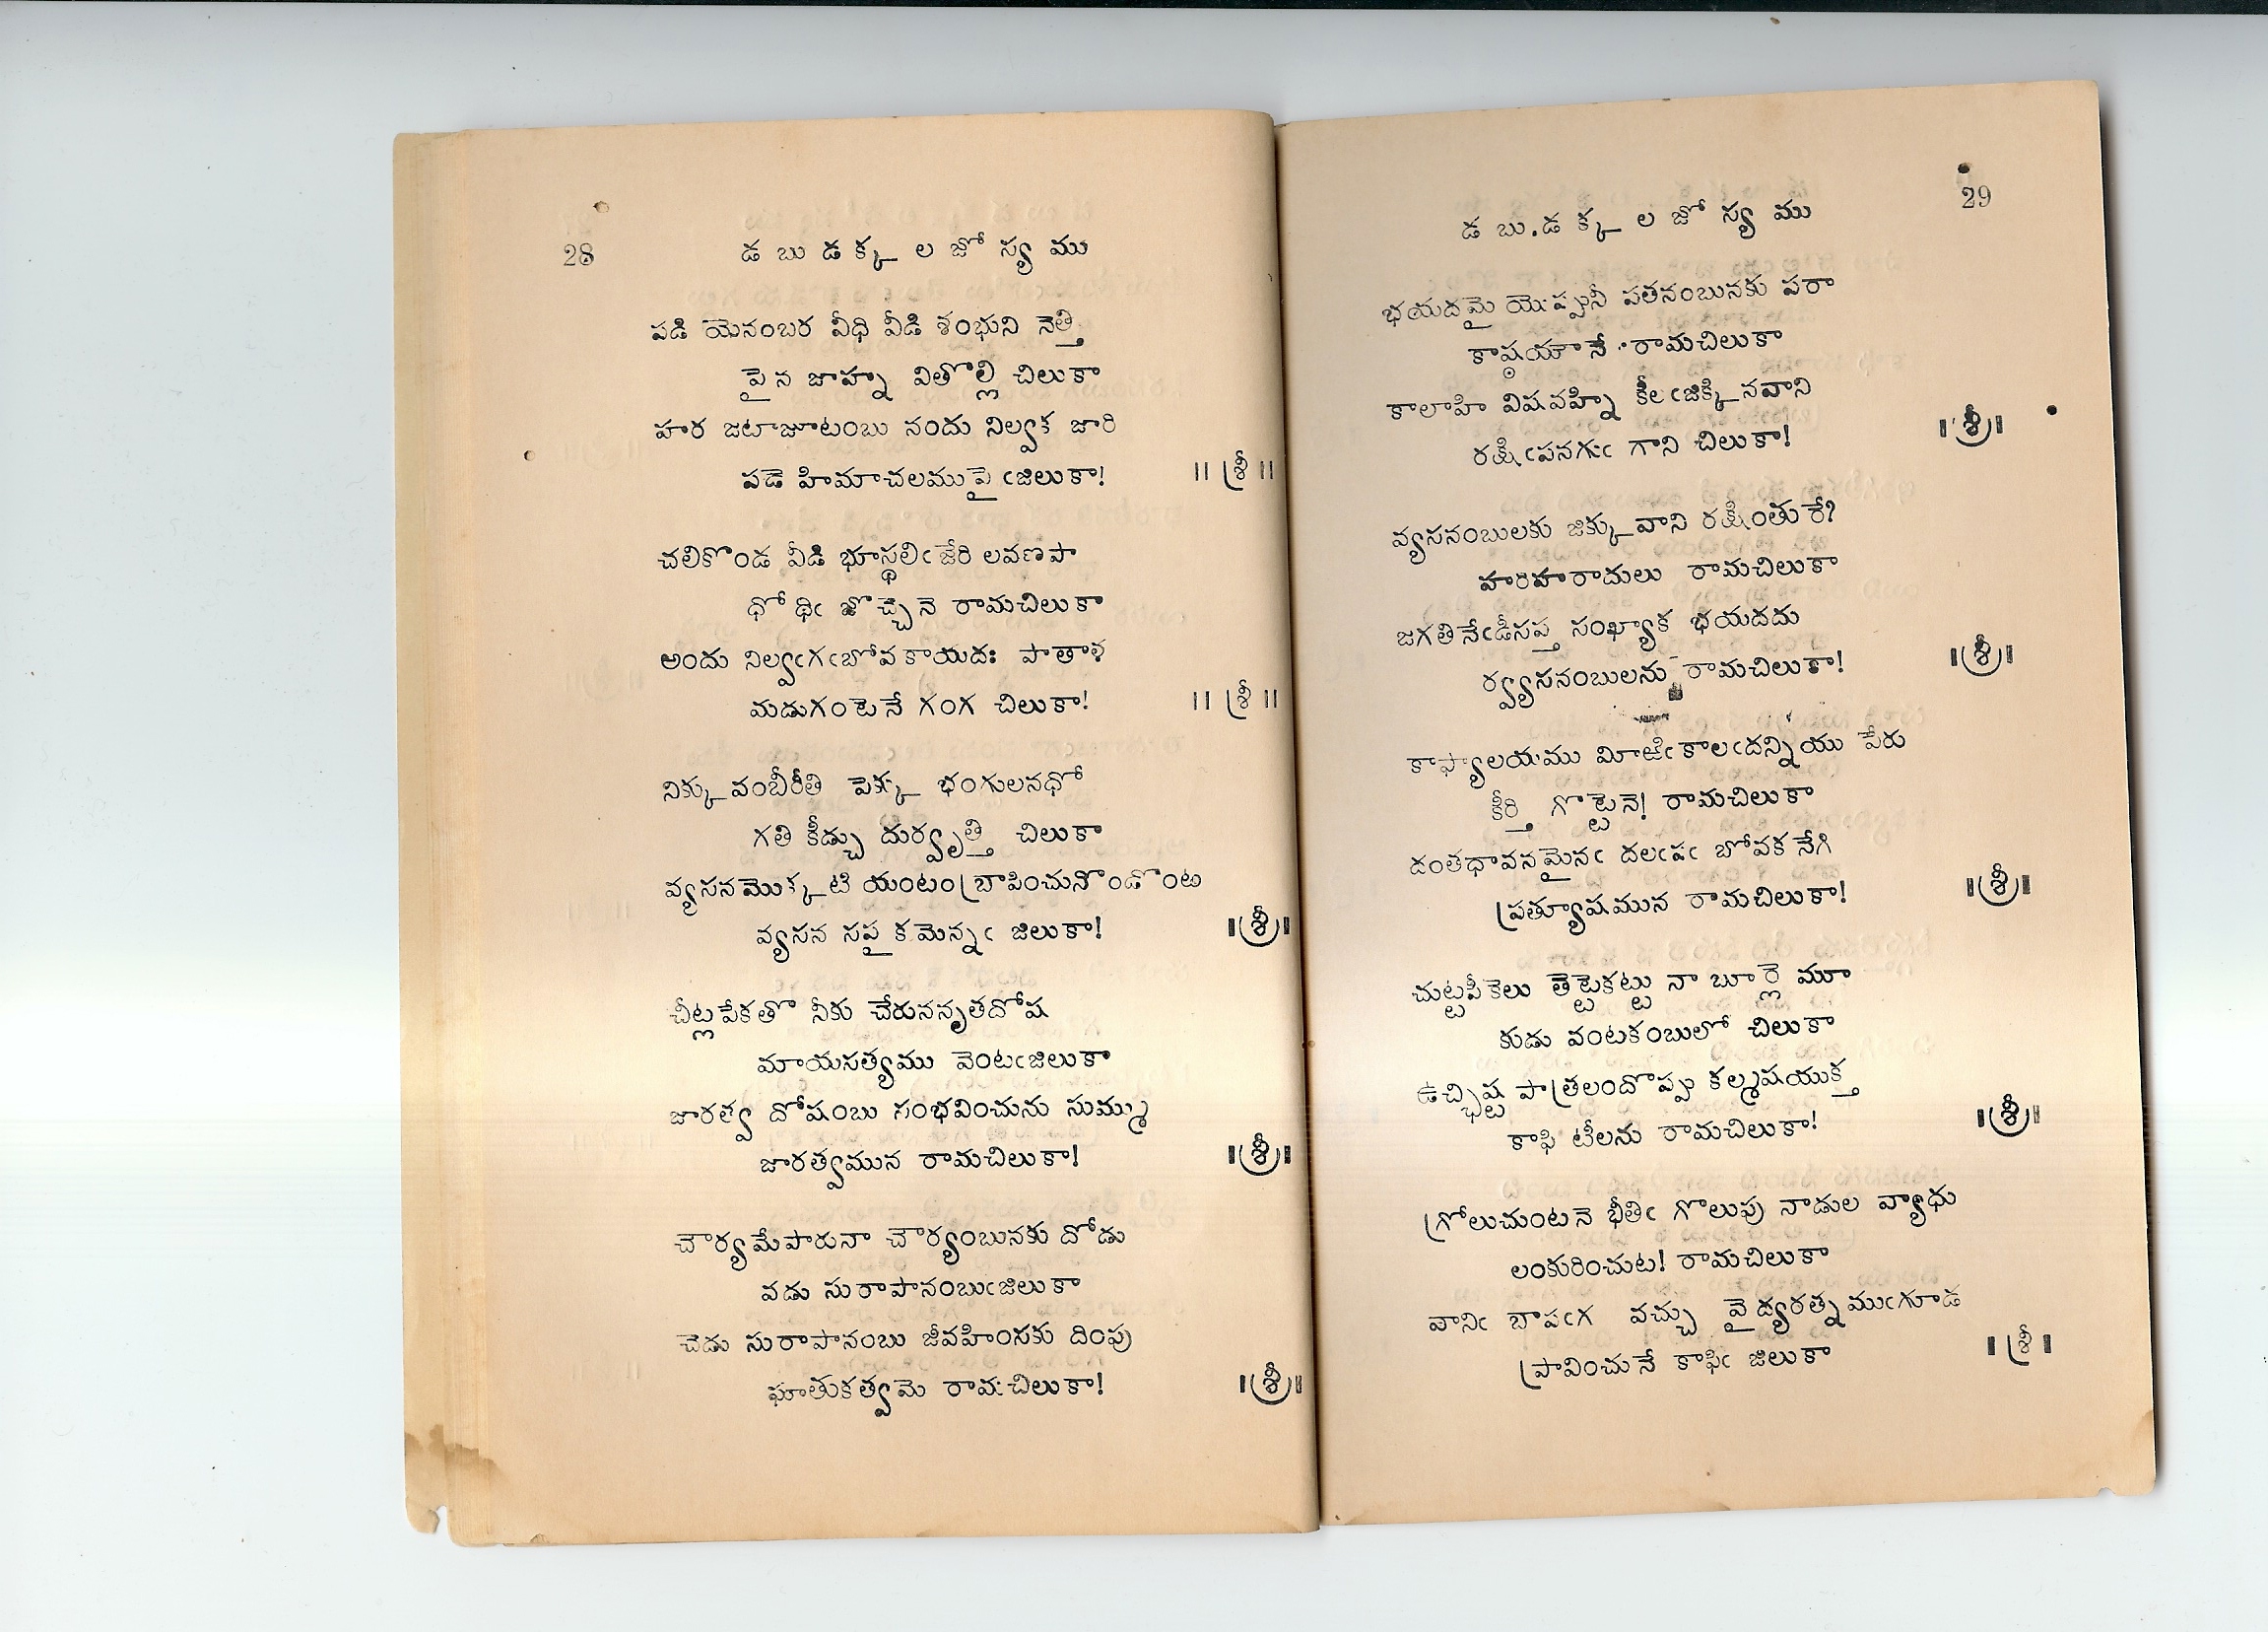 28 డ బు డ క్క ల జో స్య ము
పడి యెనంబర వీధి వీడి శంభుని నెత్తి
పై న జాహ్న వితొల్లి చిలుకా
హర జటాజూటంబు నందు నిల్వక జారి
పడె హిమాచలముపై ఁజిలుకా! ॥ శ్రీ ॥
చలికొండ వీడి భూస్థలిఁ జేరి లవణపా
ధోథిఁ జొచ్చెనె రామచిలుకా
అందు నిల్వఁగఁబోవ కాయదః పాతాళ
మడుగంటెనే గంగ చిలుకా! ॥ శ్రీ ॥
నిక్కు వంబీరీతి పెక్కు భంగులనధో
గతి కీడ్చు దుర్వృత్తి చిలుకా
వ్యసనమొక్కటి యంటంబ్రాపించునొండొంట
వ్యసన సప్తై కమెన్నఁ జిలుకా! ॥శ్రీ॥
చీట్లపేకతొ నీకు చేరుననృతదోష
మాయసత్యము వెంటఁజిలుకా
జారత్వ దోషంబు సంభవించును సుమ్ము
జారత్వమున రామచిలుకా! ॥శ్రీ॥
చౌర్యమేపారునా చౌర్యంబునకు దోడు
వడు సురాపానంబుఁజిలుకా
చెడు సురాపానంబు జీవహింసకు దింపు
ఘాతుకత్వమె రామచిలుకా! ॥శ్రీ॥
డ బు డ క్క ల జో స్య ము 29
భయదమై యొప్పునీ పతనంబునకు పరా
కాష్ఠయానే రామచిలుకా
కాలాహి విషవహ్ని కీలఁజిక్కినవాని
రక్షిఁపనగుఁ గాని చిలుకా! ॥శ్రీ॥
వ్యసనంబులకు జిక్కువాని రక్షింతురే?
హరిహరాదులు రామచిలుకా
జగతినేఁడీసప్త సంఖ్యాక భయదదు
ర్వ్యసనంబులను రామచిలుకా! ॥శ్రీ॥
కాఫ్యాలయము మీఱిఁకాలఁదన్నియు పేరు
కీర్తి గొట్టెనె! రామచిలుకా
దంతధావనమైనఁ దలఁపఁ బోవక నేగి
ప్రత్యూషమున రామచిలుకా! ॥శ్రీ॥
చుట్టపీకెలు తెట్టెకట్టు నా బూర్లె మూ
కుడు వంటకంబులో చిలుకా
ఉచ్ఛిష్ట పాత్రలందొప్పు కల్మషయుక్త
కాఫి టీలను రామచిలుకా! ॥శ్రీ॥
గ్రోలుచుంటనె భీతిఁ గొలుపు నాడుల వ్యాధు
లంకురించుట! రామచిలుకా
వానిఁ బాపఁగ వచ్చు వైద్యరత్నముఁగూడ
ప్రావించునే కాఫిఁ జిలుకా ॥శ్రీ॥